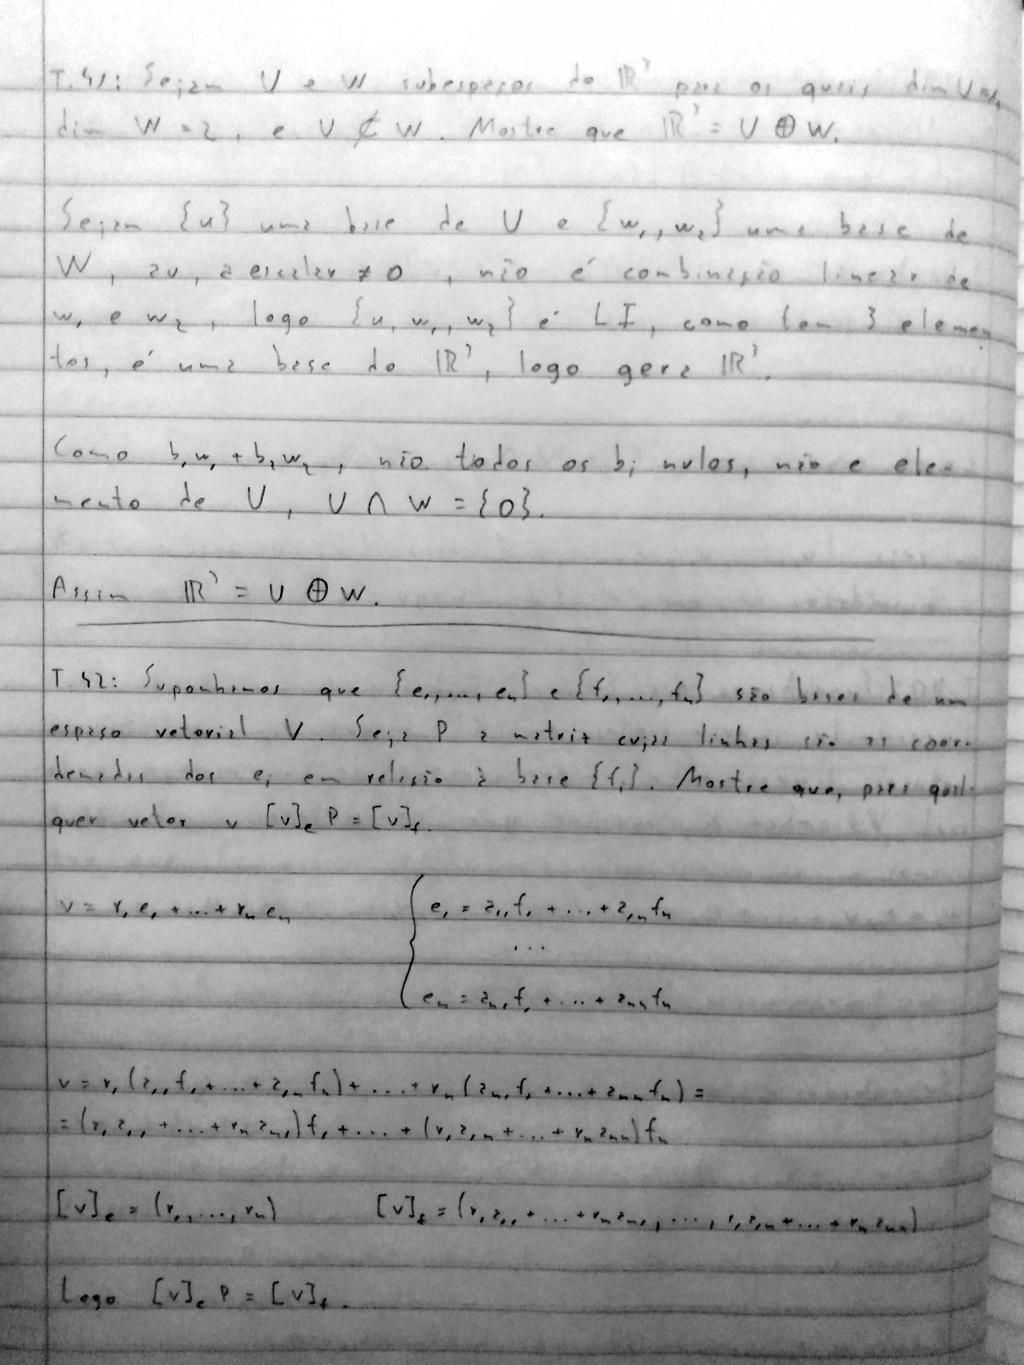 T.41: Sejam U e W subespaços do ℝ³ para os quais dim U = 1,
dim W = 2, e U ⊄ W. Mostre que ℝ³ = U ⊕ W.
Sejam {u} uma base de U e {w₁, w₂} uma base de
W, au, a escalar ≠ 0, não é combinação linear de
w₁ e w₂, logo {u, w₁, w₂} é LI, como tem 3 elemen
tos, é uma base do ℝ³, logo gera ℝ³.
Como b₁w₁ + b₂w₂, não todos os bᵢ nulos, não e ele-
mento de U, U ∩ W = {0}.
Assim ℝ³ = U ⊕ W.
T.42: Suponhamos que {e₁, ..., eₙ} e {f₁, ..., fₙ} são bases de um
espaço vetorial V. Seja P a matriz cujas linhas são as coor-
denadas dos eᵢ em relação à base {fᵢ}. Mostre que, para qual-
quer vetor v [v]ₑ P = [v]f.
v = r₁e₁ + ... + rₙeₙ { e₁ = a₁₁f₁ + ... + a₁ₙfₙ
...
eₙ = aₙ₁f₁ + ... + aₙₙfₙ
v = r₁(a₁₁f₁ + ... + a₁ₙfₙ) + ... + rₙ(aₙ₁f₁ + ... + aₙₙfₙ) =
= (r₁a₁₁ + ... + rₙaₙ₁)f₁ + ... + (r₁a₁ₙ + ... + rₙaₙₙ)fₙ
[v]ₑ = (r₁, ..., rₙ) [v]f = (r₁a₁₁ + ... + rₙaₙ₁, ..., r₁a₁ₙ + ... + rₙaₙₙ)
Logo [v]ₑ P = [v]f.